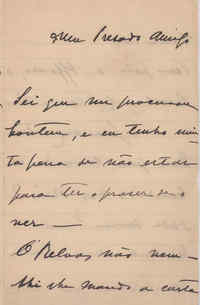 Meu Presado Amigo
Sei que me procurou
hontem, e eu tenho mui-
ta pena de não estar
para ter o prazer de o
ver —
O Relvas não
lhe manda a carta